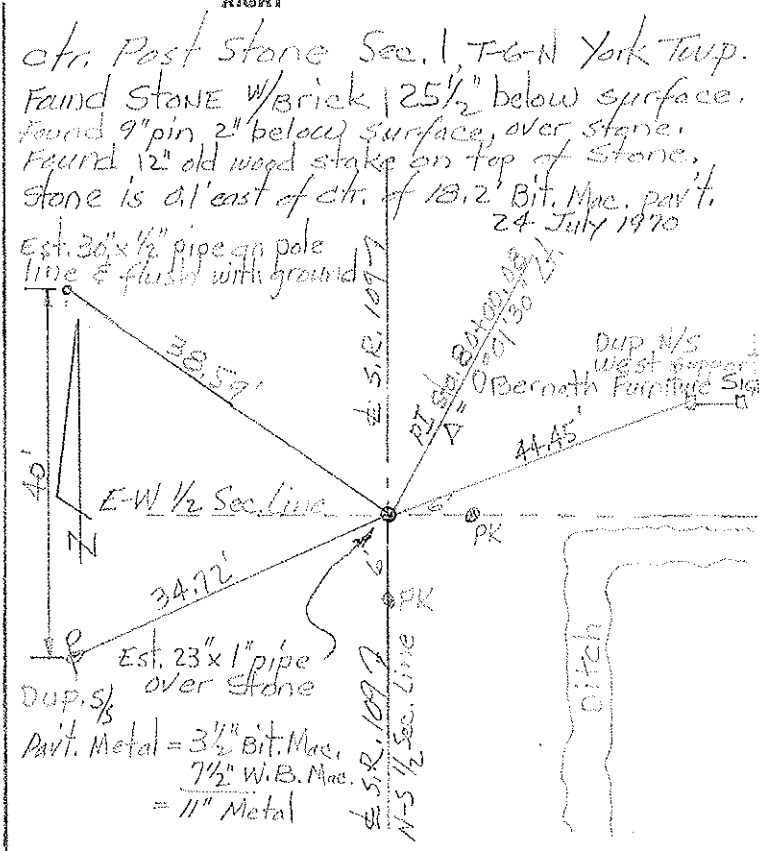 RIGHT
Ctr. Post Stone Sec. 1, T-6-N York Twp.
Found Stone W/Brick 25½" below surface.
Found 9" pin 2" below surface, over stone.
Found 12" old wood stake on top of Stone.
Stone is 0.1' east of ctr. of 18.2' Bit. Mac. pav't.
24 July 1970
Est. 30" x ½" pipe on pole
line & flush with ground
38.59'
℄ S.R. 109
PI Sta. 80+00.08
Δ = 0°01'30" Lt.
Dup. N/S
West support
Bernath Furniture
44.45'
40'
E-W ½ Sec. Line
6'
PK
N
34.72'
6'
PK
Est. 23" x 1" pipe
over Stone
Dup. S/S
Pav't. Metal = 3½" Bit. Mac.
7½" W.B. Mac.
= 11" Metal
℄ S.R. 109
N-S ½ Sec. Line
Ditch